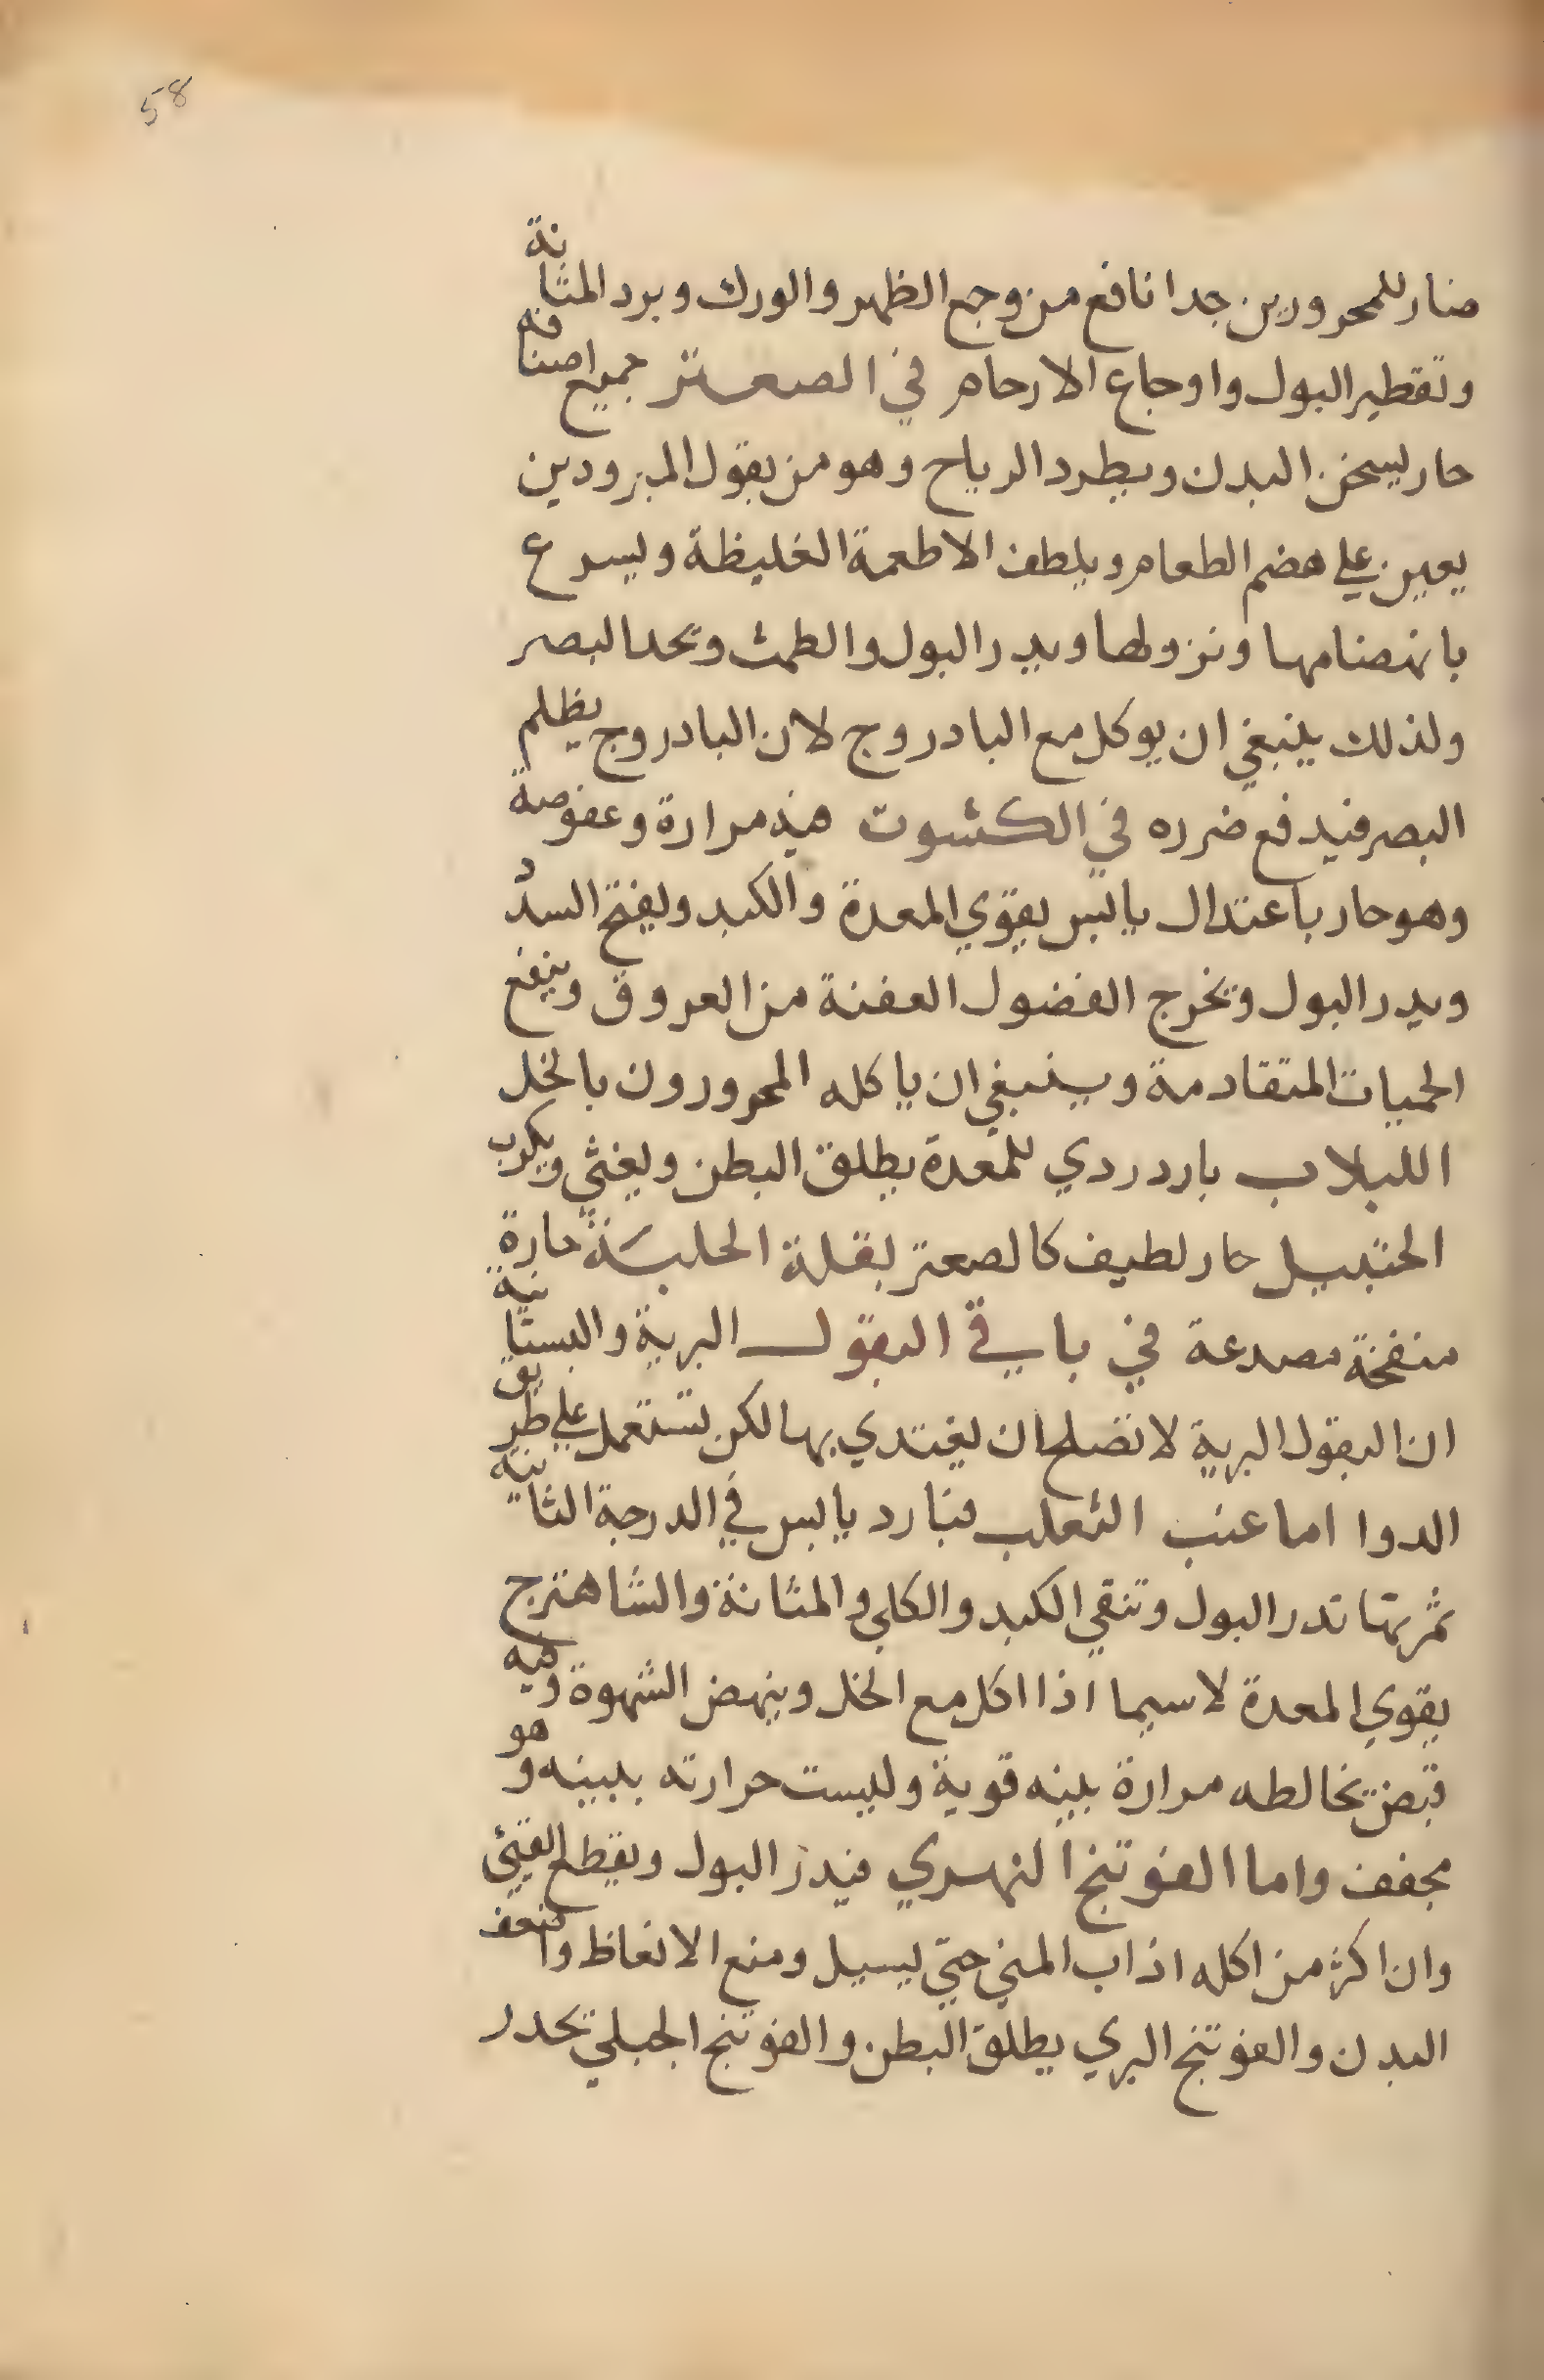 58
ضار للمحرورين جدا نافع من وجع الظهر والورك وبرد المثانة
وتقطير البول واوجاع الارحام في الصعتر جميع اصنافه
حار يسخن البدن ويطرد الرياح وهو من بقول المبرودين
يعين على هضم الطعام ويلطف الاطعمة الغليظة ويسرع
بانهضامها ونزولها ويدر البول والطمث ويحد البصر
ولذلك ينبغي ان يوكل مع البادروج لان البادروج يظلم
البصر فيدفع ضرره في الكشوت هذ مرارة وعفوصة
وهو حار باعتدال يابس يقوي المعدة والكبد ويفتح السدد
ويدر البول ويخرج الفضول العفنة من العروق وينفع
الحميات المتقادمة وينبغي ان ياكله المحرورون بالخل
اللبلاب بارد ردي للمعدة يطلق البطن ويغثي ويكرب
حار لطيف كالصعتر بقلة حارة
منفخة مصدعة في باقي البقول البرية والبستانية
ان البقول البرية لا تصلح ان يغتدي بها لكن تستعمل على طريق
الدوا اما عنب الثعلب فبارد يابس في الدرجة الثانية
ثمرتها تدر البول وتنقي الكبد والكلى والمثانة والشاهترج
يقوي المعدة لا سيما اذا اكل مع الخل وينهض الشهوة وفيه
قبض يخالطه مرارة بينه قوية وليست حرارته ببينه وهو
مجفف واما الفوتنج النهري فيدر البول ويقطع القيئ
وان اكثر من اكله اذاب المني حتى يسيل ومنع الانعاظ واضعف
البدن والفوتنج البري يطلق البطن والفوتنج الجبلي يحدر